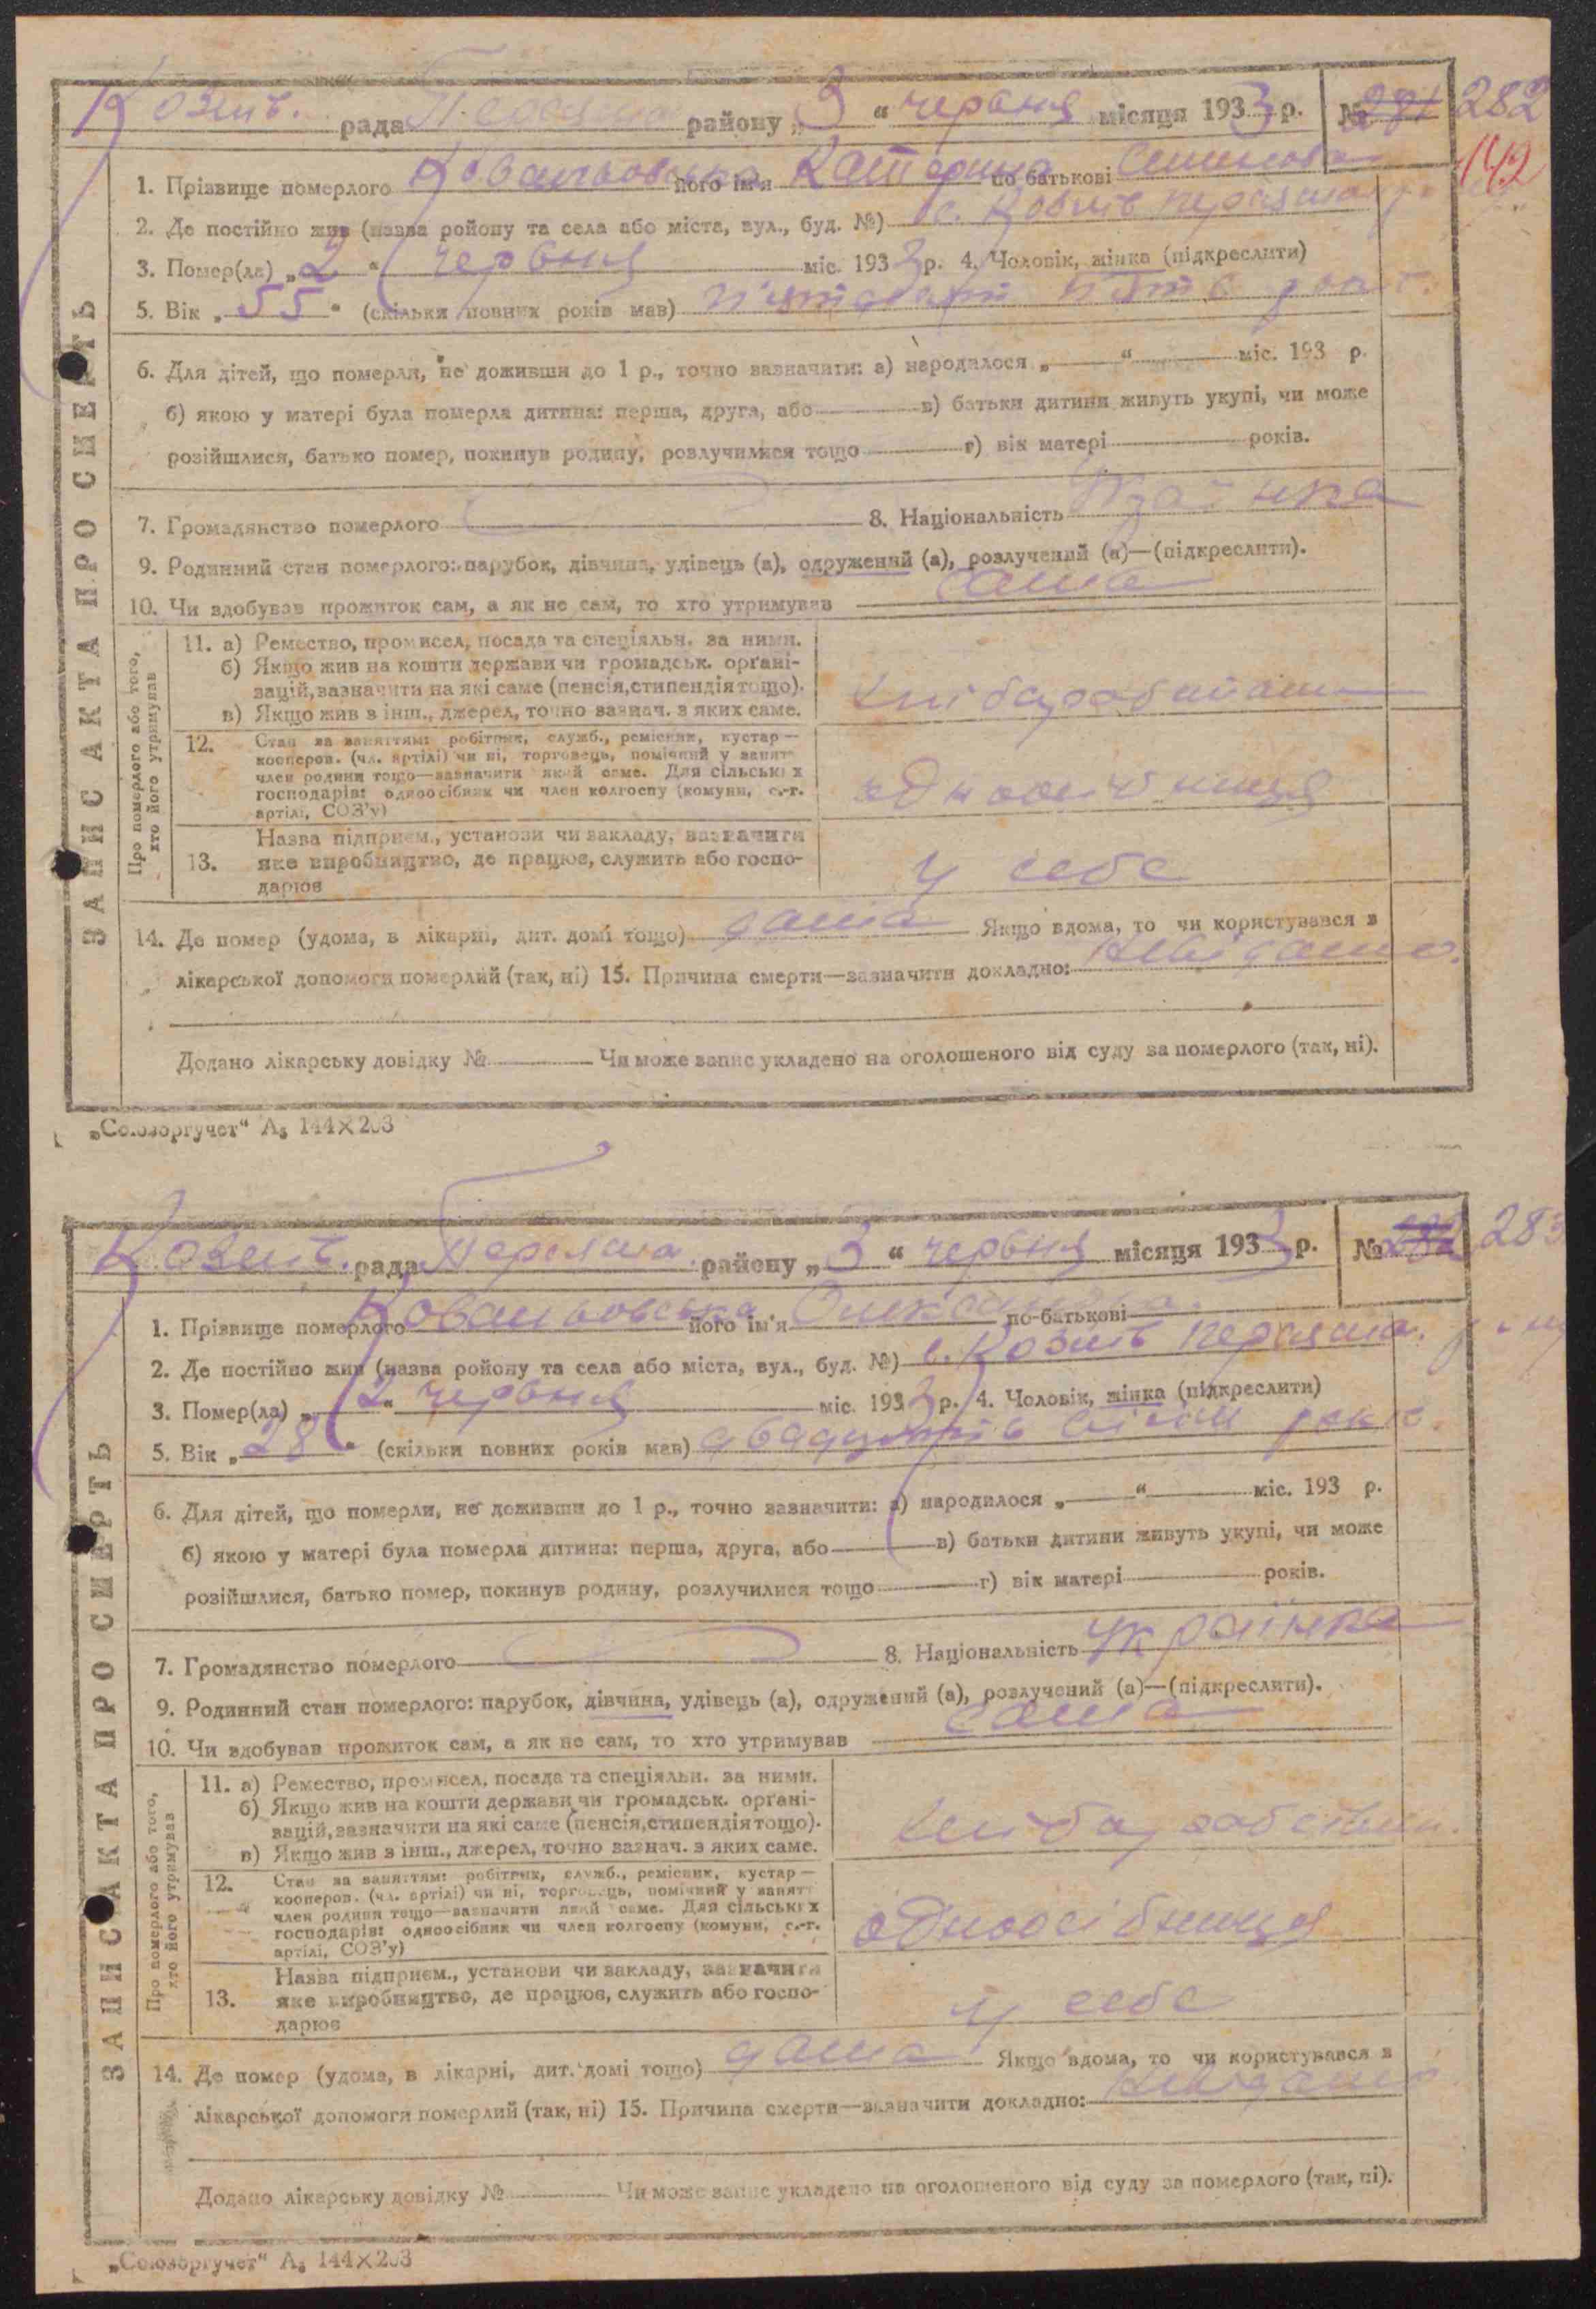 Козит. рада район у „3“ червня місяця 1933 р. № 281 282
142
1. Прізвище померлого Ковальовська його ім'я Катерина по батькові
2. Де постійно жив (назва ройону та села або міста, вул., буд. №) с.
3. Помер(ла) „2“ червня міс. 1933 р. 4. Чоловік, жінка (підкреслити)
5. Вік „55“ (скільки повних років мав) п'ятдесят п'ять рок.
6. Для дітей, що померли, не доживши до 1 р., точно зазначити: а) народилося „ “ міс. 193 р.
б) якою у матері була померла дитина: перша, друга, або в) батьки дитини живуть укупі, чи може
розійшлися, батько помер, покинув родину, розлучилися тощо г) вік матері років.
7. Громадянство померлого 8. Національність
9. Родинний стан померлого: парубок, дівчина, удівець (а), одружений (а), розлучений (а)—(підкреслити).
10. Чи здобував прожиток сам, а як не сам, то хто утримував сама
Про померлого або того, хто його утримував
11. а) Ремество, промисел, посада та спеціяльн. за ними.
б) Якщо жив на кошти держави чи громадськ. орґані-
зацій, зазначити на які саме (пенсія, стипендія тощо).
в) Якщо жив з інш., джерел, точно зазнач. з яких саме.
12. Стан за заняттям: робітник, служб., ремісник, кустар—
кооперов. (чл. артілі) чи ні, торговець, помічний у занятт
член родини тощо—зазначити який саме. Для сільських
господарів: одноосібник чи член колгоспу (комуни, с.-г.
артілі, СОЗ'у)
одноосібниця
13. Назва підприєм., установи чи закладу, зазначити
яке виробництво, де працює, служить або госпо-
дарює
у себе
14. Де помер (удома, в лікарні, дит. домі тощо) дома Якщо вдома, то чи користувався з
лікарської допомоги померлий (так, ні) 15. Причина смерти—зазначити докладно: Невідомо.
Додано лікарську довідку № Чи може запис укладено на оголошеного від суду за померлого (так, ні).
ЗАПИС АКТА ПРО СМЕРТЬ
„Союзоргучет“ А5 144×203
Козит. рада район у „3“ червня місяця 1933 р. № 282 283
1. Прізвище померлого Ковальовська його ім'я Олександра по-батькові
2. Де постійно жив (назва ройону та села або міста, вул., буд. №) с.
3. Помер(ла) „2“ червня міс. 1933 р. 4. Чоловік, жінка (підкреслити)
5. Вік „28“ (скільки повних років мав) двадцять вісім рок.
6. Для дітей, що померли, не доживши до 1 р., точно зазначити: а) народилося „ “ міс. 193 р.
б) якою у матері була померла дитина: перша, друга, або в) батьки дитини живуть укупі, чи може
розійшлися, батько помер, покинув родину, розлучилися тощо г) вік матері років.
7. Громадянство померлого 8. Національність українка
9. Родинний стан померлого: парубок, дівчина, удівець (а), одружений (а), розлучений (а)—(підкреслити).
10. Чи здобував прожиток сам, а як не сам, то хто утримував сама
Про померлого або того, хто його утримував
11. а) Ремество, промисел, посада та спеціяльн. за ними.
б) Якщо жив на кошти держави чи громадськ. орґані-
зацій, зазначити на які саме (пенсія, стипендія тощо).
в) Якщо жив з інш., джерел, точно зазнач. з яких саме.
12. Стан за заняттям: робітник, служб., ремісник, кустар—
кооперов. (чл. артілі) чи ні, торговець, помічний у занятт
член родини тощо—зазначити який саме. Для сільських
господарів: одноосібник чи член колгоспу (комуни, с.-г.
артілі, СОЗ'у)
одноосібниця
13. Назва підприєм., установи чи закладу, зазначити
яке виробництво, де працює, служить або госпо-
дарює
у себе
14. Де помер (удома, в лікарні, дит. домі тощо) дома Якщо вдома, то чи користувався з
лікарської допомоги померлий (так, ні) 15. Причина смерти—зазначити докладно: Невідомо.
Додано лікарську довідку № Чи може запис укладено на оголошеного від суду за померлого (так, ні).
ЗАПИС АКТА ПРО СМЕРТЬ
„Союзоргучет“ А5 144×203